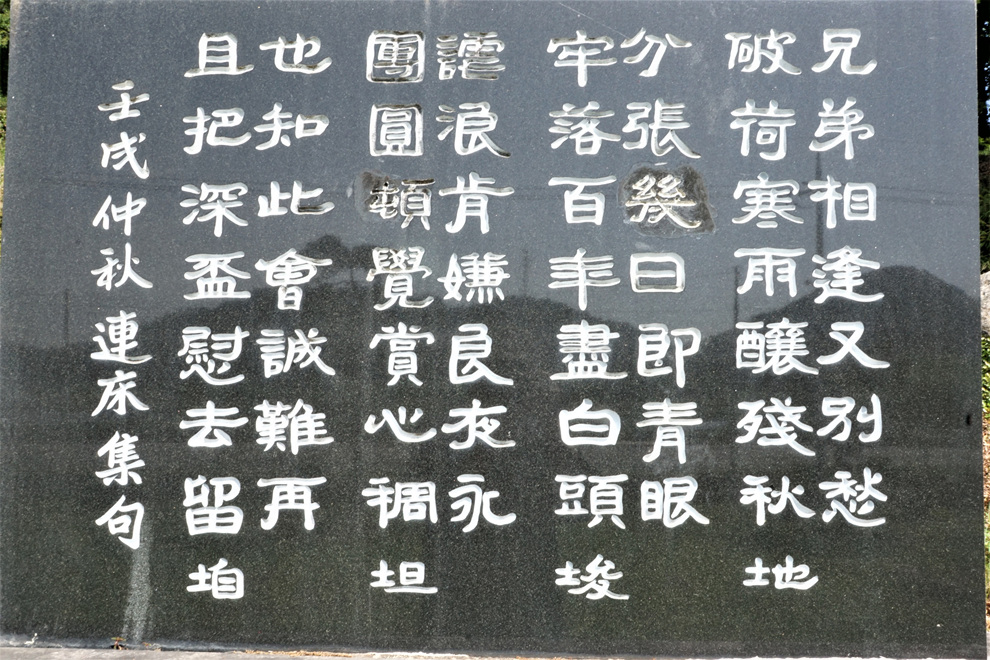 兄弟相逢又別愁
破荷寒雨釀殘秋 地
分張幾日即青眼
牢落百年盡白頭 埈
謔浪肯嫌良夜永
團圓頓覺賞心稠 坦
也知此會誠難再
且把深盃慰去留 垍
壬戌仲秋連床集句